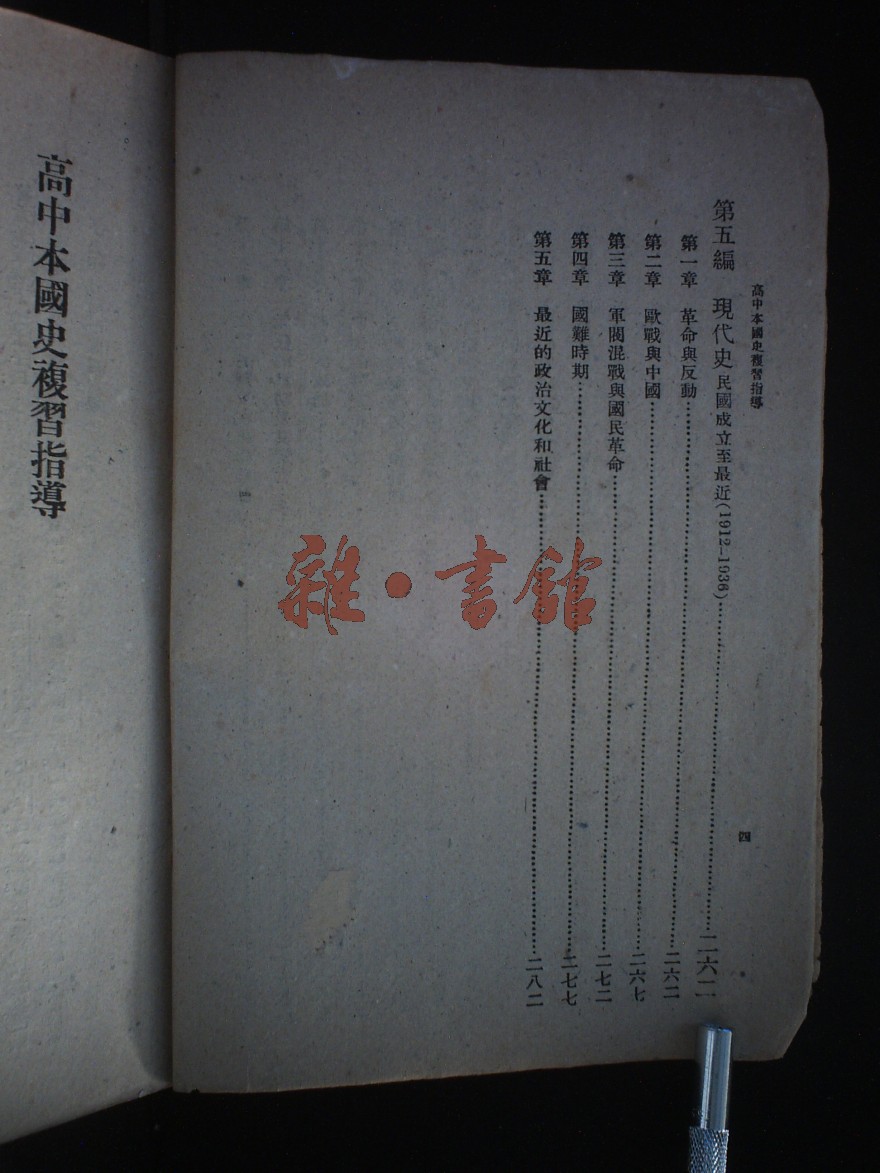 高中本國史複習指導
四
第五編 現代史 民國成立至最近(1912—1936)……二六二
第一章 革命與反動……二六二
第二章 歐戰與中國……二六七
第三章 軍閥混戰與國民革命……二七二
第四章 國難時期……二七七
第五章 最近的政治文化和社會……二八二
高中本國史複習指導
雜·書館